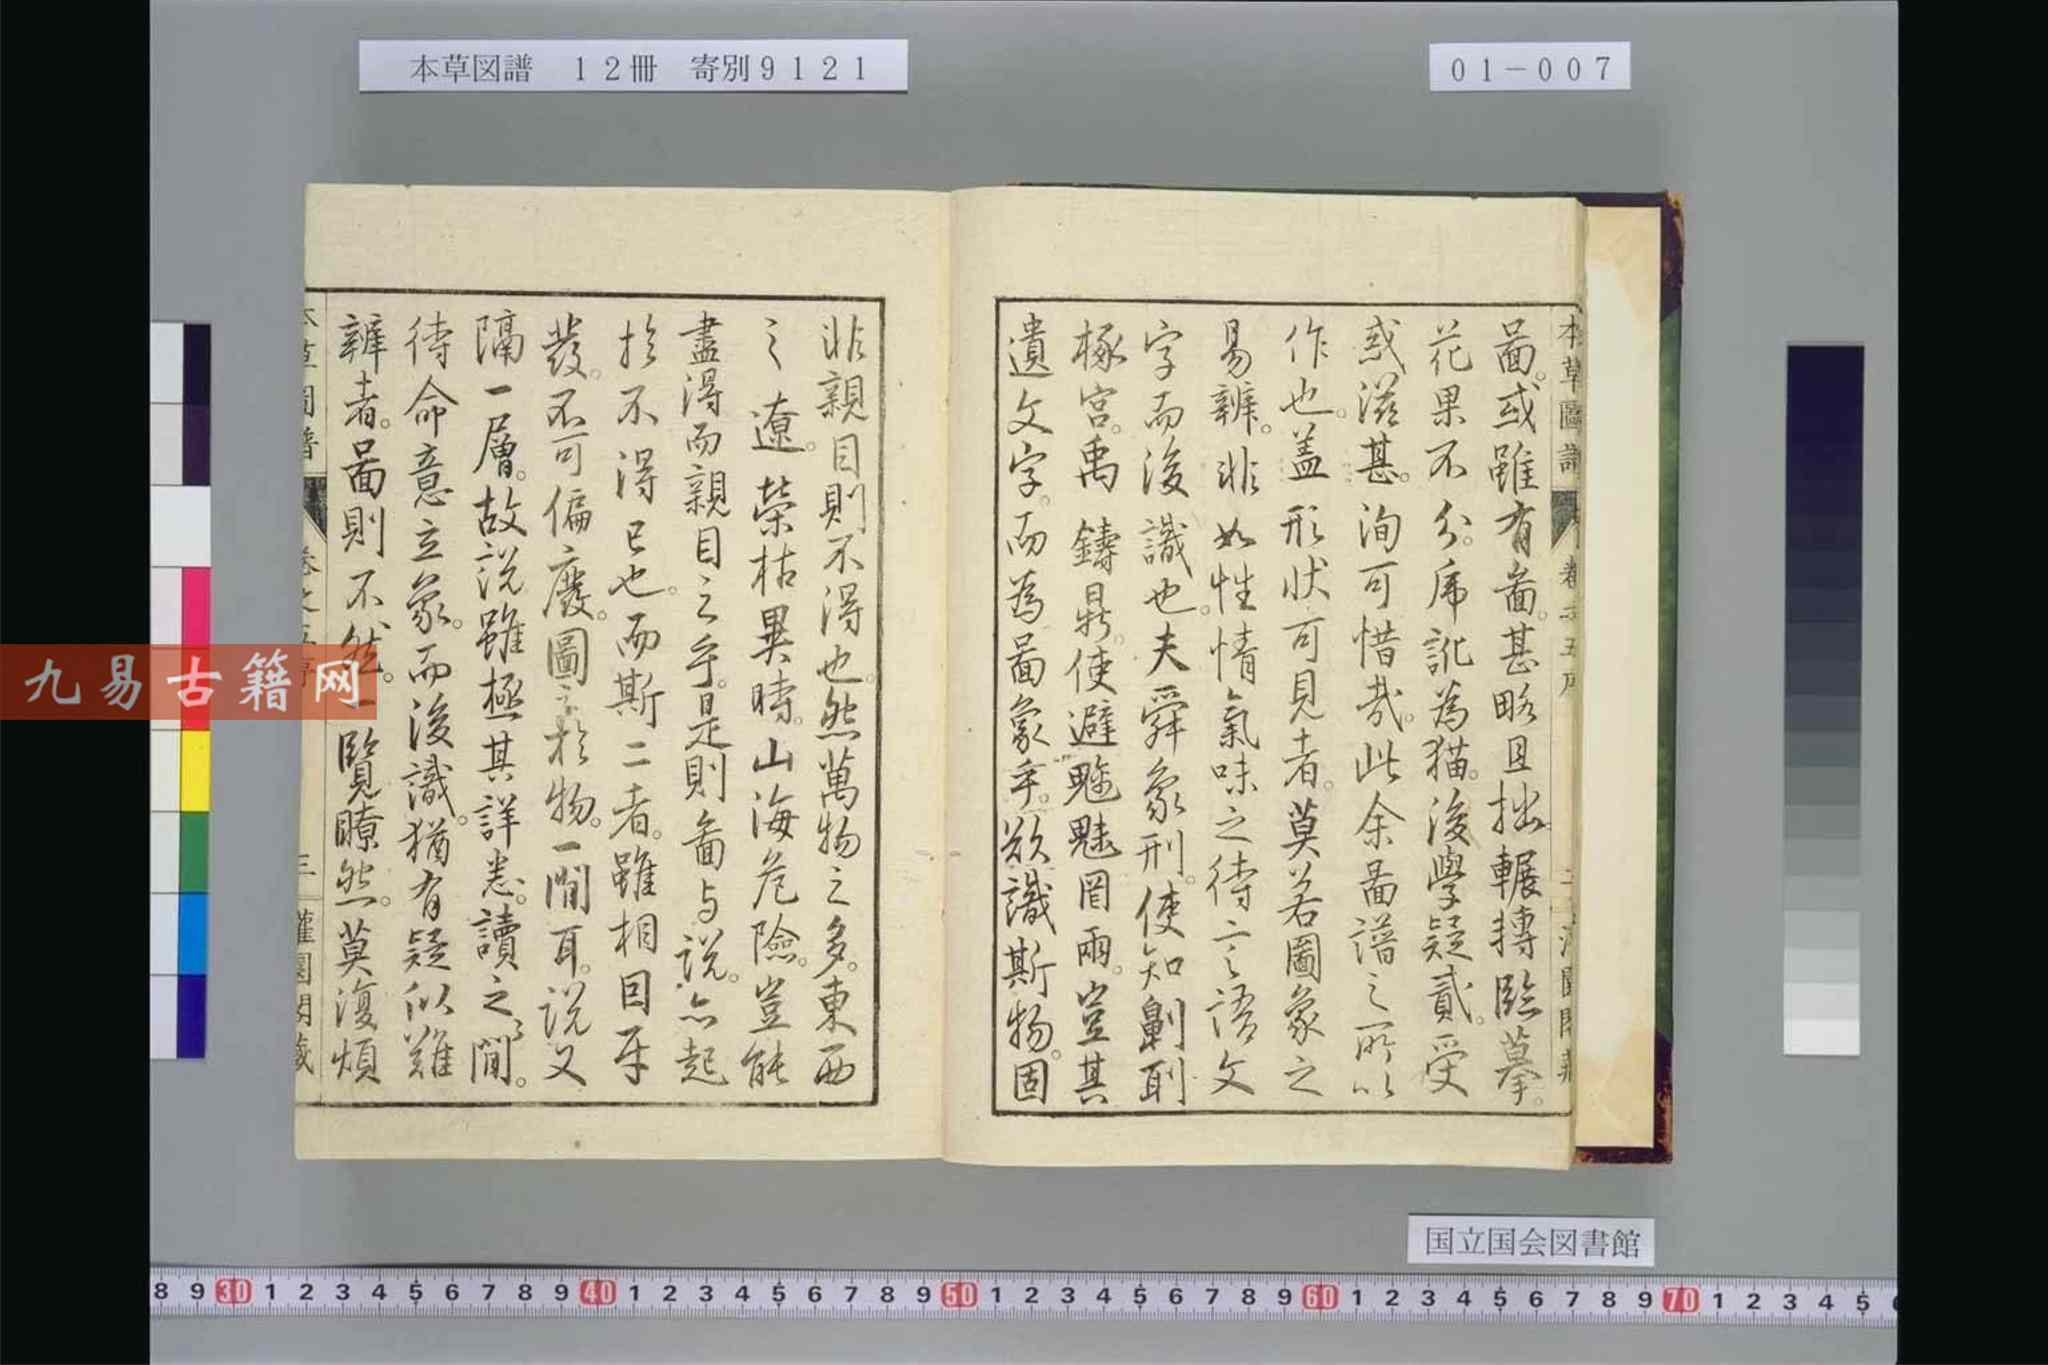 本草図譜　１２冊　寄別９１２１
０１－００７
本草圖譜 卷之五序
啚。或雖有啚。甚略且拙。輾轉臨摹。
花果不分。乕訛為猫。後學疑貳。受
惑滋甚。洵可惜哉。此余啚譜之所以
作也。盖形状可見者。莫若圖象之
易辨。非如性情氣味之待言語文
字而後識也。夫舜象刑。使知劓刵
椓宮。禹鑄鼎。使避魑魅罔兩。豈其
遺文字。而為啚象乎。欲識斯物。固
非親目則不得也。然萬物之多。東西
之遼。榮枯異時。山海危險。豈能
盡得而親目之乎。是則啚与説。亦起
於不得已也。而斯二者。雖相目牙
發。不可偏廢。圖之於物。一間耳。説又
隔一層。故説雖極其詳悉。讀之間。
待命意立象。而後識。猶有疑似難
辨者。啚則不然。一覧瞭然。莫復煩
本草圖譜 卷之五序 三 灌園閣蔵
九易古籍网
国立国会図書館
8 9 30 1 2 3 4 5 6 7 8 9 40 1 2 3 4 5 6 7 8 9 50 1 2 3 4 5 6 7 8 9 60 1 2 3 4 5 6 7 8 9 70 1 2 3 4 5